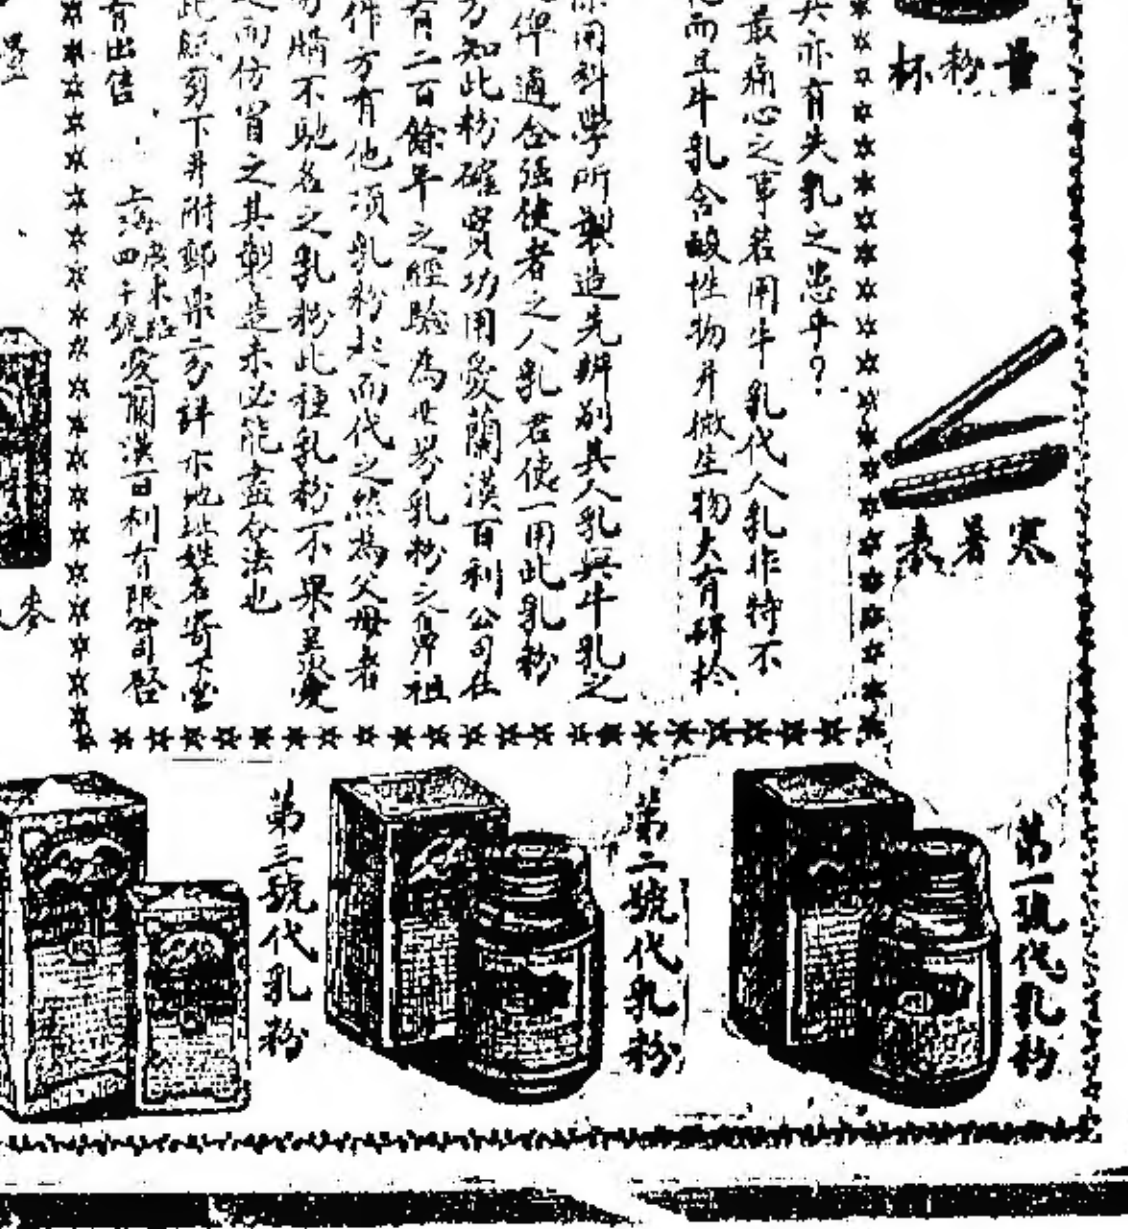 量粉杯
寒暑表
亦有失乳之患乎？
最痛心之事若用牛乳代人乳非特不
而且牛乳含酸性物并微生物大有研於
用科學所製造先辨別其人乳與牛乳之
俾適合強健者之人乳君使一用此乳粉
方知此粉確實功用愛蘭漢百利公司在
有二百餘年之經驗為世界乳粉之鼻祖
件方有他項乳粉起而代之然為父母者
購不馳名之乳粉此種乳粉不果
而仿冒之其製造未必能盡合法也
此紙剪下并附郵票二分詳示地址姓名寄下
有出售
上海廣東路
四十號愛蘭漢百利有限公司啓
麥
第一號代乳粉
第二號代乳粉
第三號代乳粉